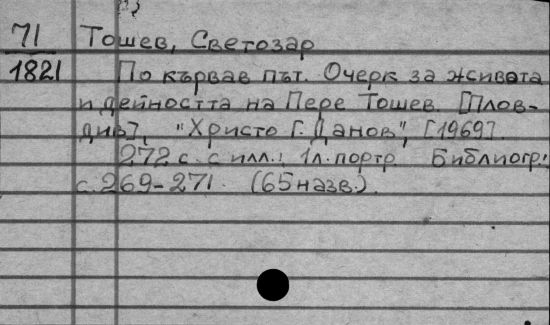 71
1821
Тошев, Светозар
По кървав път. Очерк за живота
и дейността на Пере Тошев. [Плов-
див], "Христо Г. Данов", [1969].
272 с. с илл.; 1 л. портр. Библиогр.:
с. 269-271. (65 назв.).